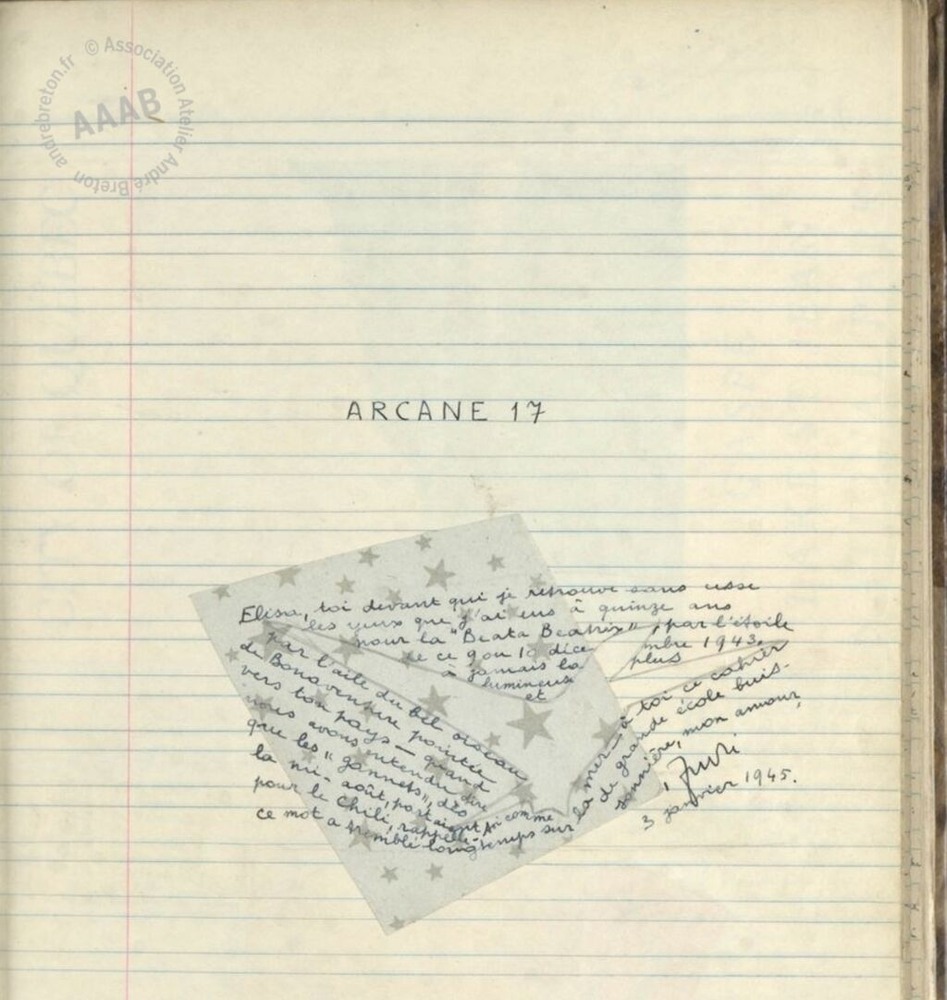 © Association Atelier André Breton andrebreton.fr
AAAB
ARCANE 17
Elisa, toi devant qui je retrouve sans cesse
les yeux que j'ai eus à quinze ans
pour la "Beata Beatrix", par l'étoile
de ce 9 ou 10 décembre 1943,
à jamais la plus
lumineuse
et
par l'aile du bel oiseau
de Bonaventure pointée
vers ton pays — quand
nous avons entendu dire
que les "gannets", dès
la mi-août, partaient
pour le Chili, rappelle-toi comme
ce mot a tremblé longtemps sur la mer — à toi ce cahier
de grande école buis-
sonnière, mon amour,
3 janvier 1945.